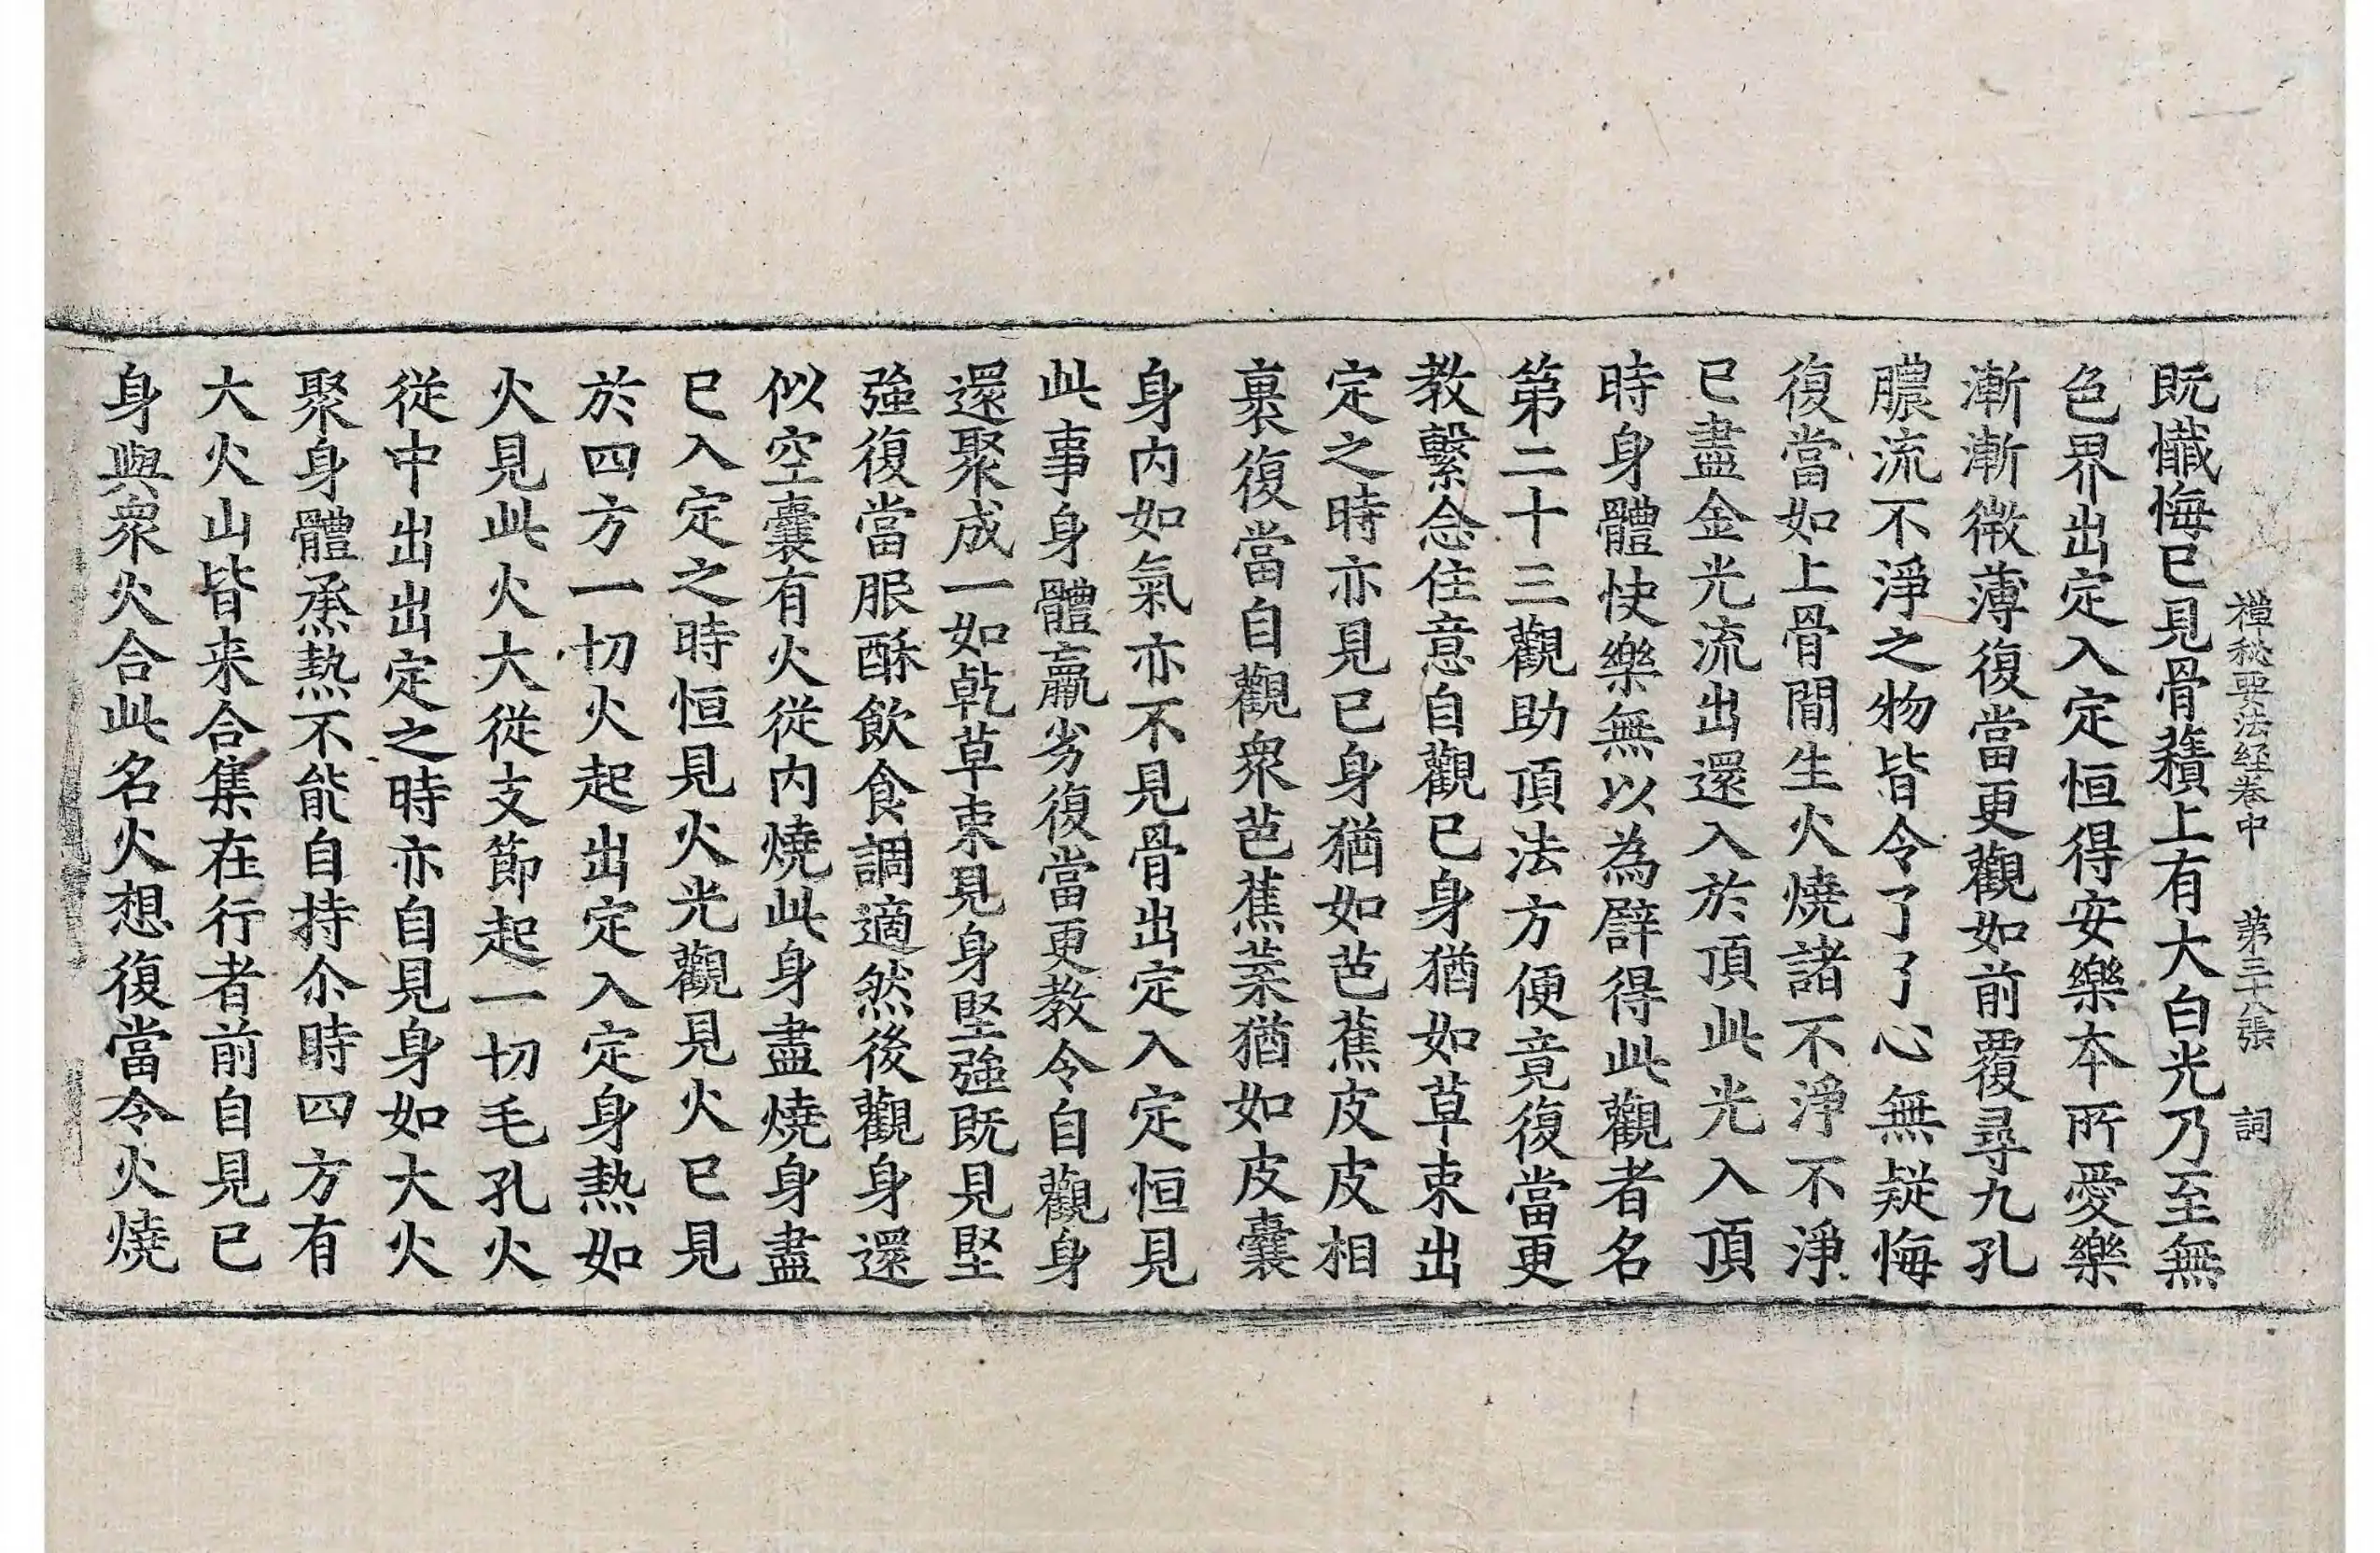 禪秘要法経卷中 第三十八張 詞
既懺悔已見骨𧂐上有大白光乃至無
色界出定入定恒得安樂本所愛樂
漸漸微薄復當更觀如前覆尋九孔
膿流不淨之物皆令了了心無疑悔
復當如上骨閒生火燒諸不淨不淨
已盡金光流出還入於頂此光入頂
時身體快樂無以為辟得此觀者名
第二十三觀助頂法方便竟復當更
教繫念住意自觀已身猶如草束出
定之時亦見已身猶如芭蕉皮皮相
裹復當自觀衆芭蕉葉猶如皮囊
身内如氣亦不見骨出定入定恒見
此事身體羸劣復當更教令自觀身
還聚成一如乾草束見身堅強既見堅
強復當服酥飲食調適然後觀身還
似空囊有火從内燒此身盡燒身盡
已入定之時恒見火光觀見火已見
於四方一切火起出定入定身熱如
火見此火大從支節起一切毛孔火
從中出出定之時亦自見身如大火
聚身體烝熱不能自持尒時四方有
大火山皆来合集在行者前自見已
身與衆火合此名火想復當令火燒